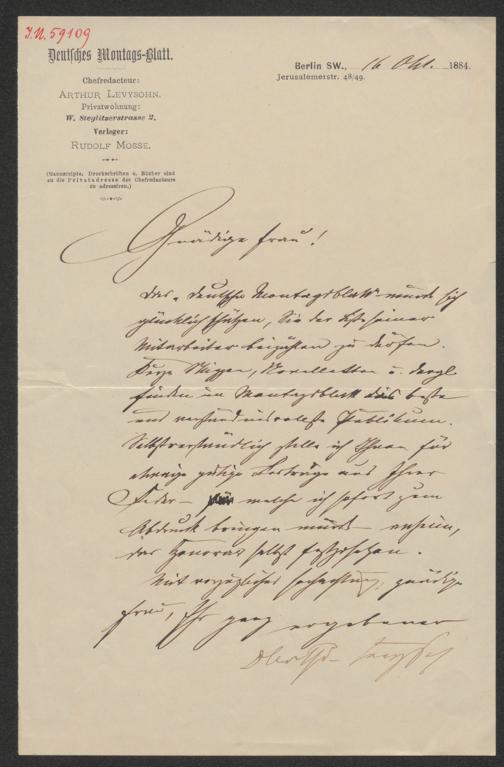 J.N. 59109
Deutsches Montags-Blatt.
Chefredacteur:
ARTHUR LEVYSOHN.
Privatwohnung:
W. Steglitzerstrasse 2.
Verleger:
RUDOLF MOSSE.
(Manuscripte, Druckschriften u. Bücher sind
an die Privatadresse des Chefredacteurs
zu adressiren.)
Berlin SW., 16 Okt. 1884.
Jerusalemerstr. 48/49.
Gnädige Frau!
Das "Deutsche Montagsblatt" würde sich
glücklich schätzen, Sie der Liste seiner
Mitarbeiter beizählen zu dürfen.
Kurze Skizzen, Novelletten u. dergl
finden im Montagsblatt das beste
und verständnisvollste Publikum.
Selbstverständlich stelle ich Ihnen für
etwaige gütige Beiträge aus Ihrer
Feder – welche ich sofort zum
Abdruck bringen würde –
das Honorar selbst festzusetzen.
Mit vorzüglicher Hochachtung, gnädige
Frau, Ihr ganz ergebener
Arthur Levysohn